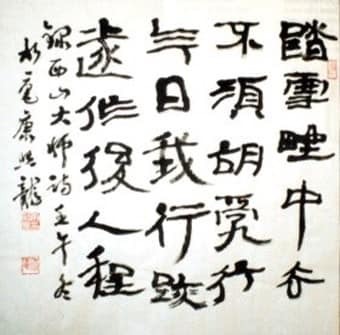 踏雪野中去
不須胡亂行
今日我行跡
遂作後人程
錄西山大師詩壬午冬
康龍